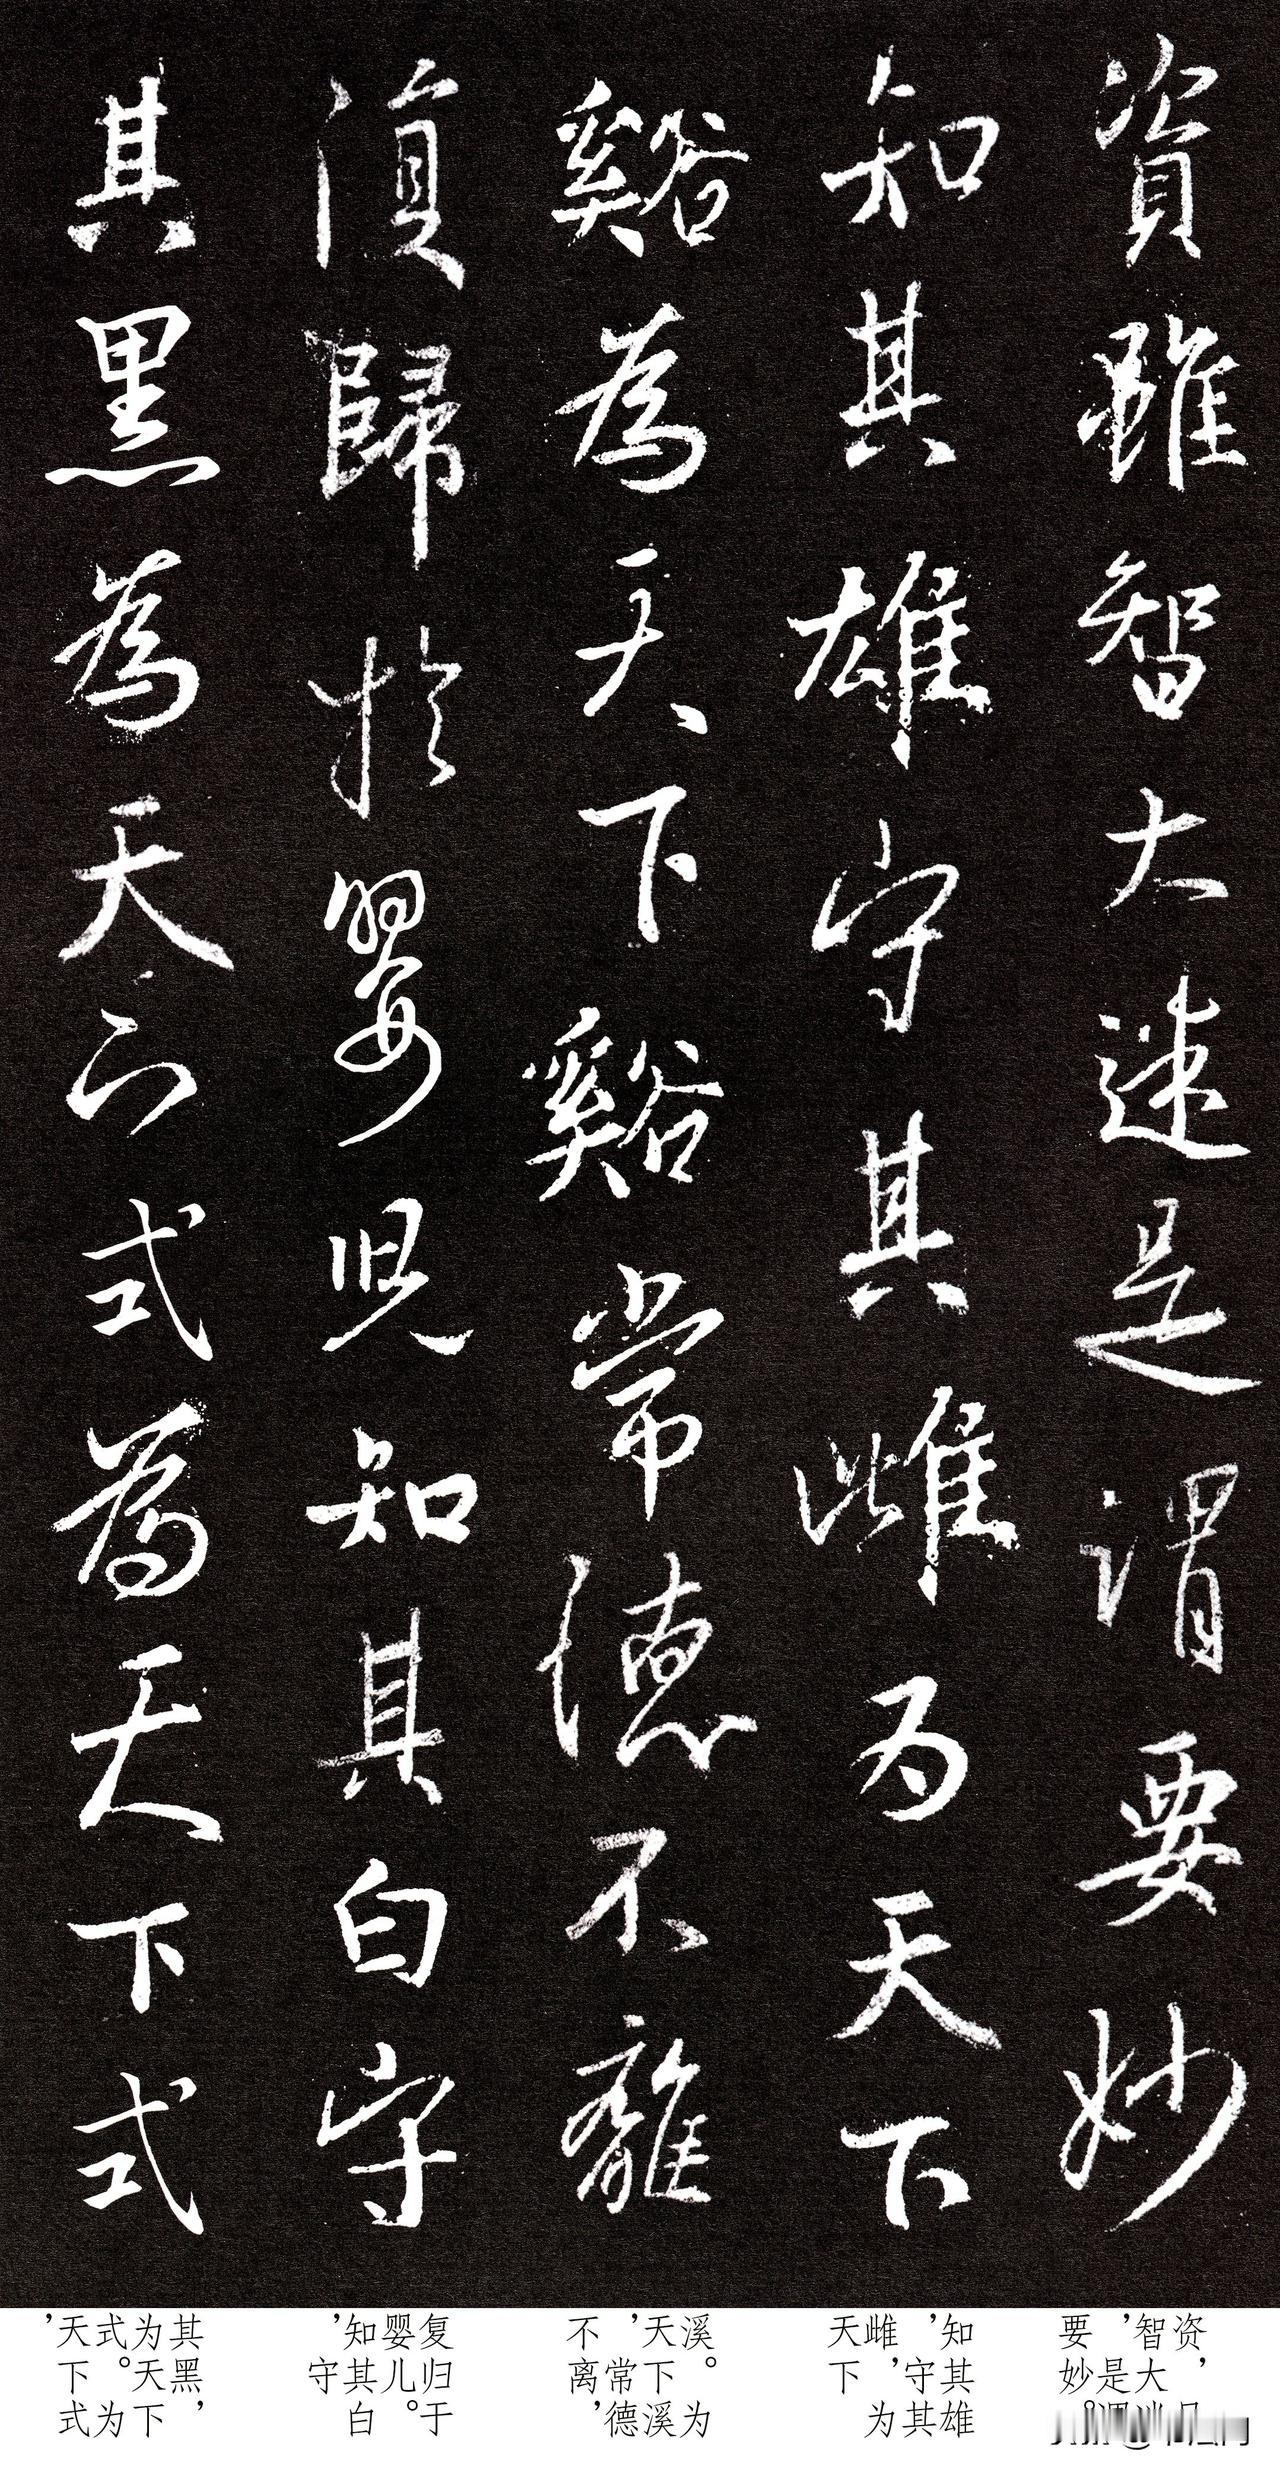 資雖智大迷是謂要妙
知其雄守其雌为天下
谿為天下谿常德不離
復歸於嬰兒知其白守
其黑為天下式為天下式
资，
智大
，是谓
要妙。
知其雄
，守其
雌，为
天下
溪。为
天下溪
，常德
不离，
复归于
婴儿。
知其白
，守
其黑，
为天下
式。为
天下式
，